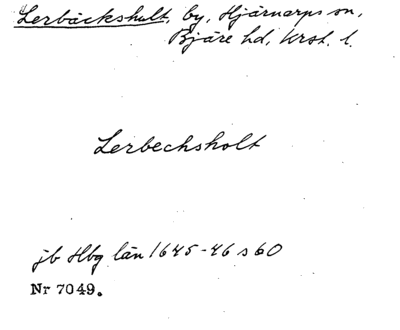 Lerbäckshult, by, Hjärnarps sn,
Bjäre hd, Krst. l.
Lerbechsholt
jb Hbg län 1645-46 s 60
Nr 7049.